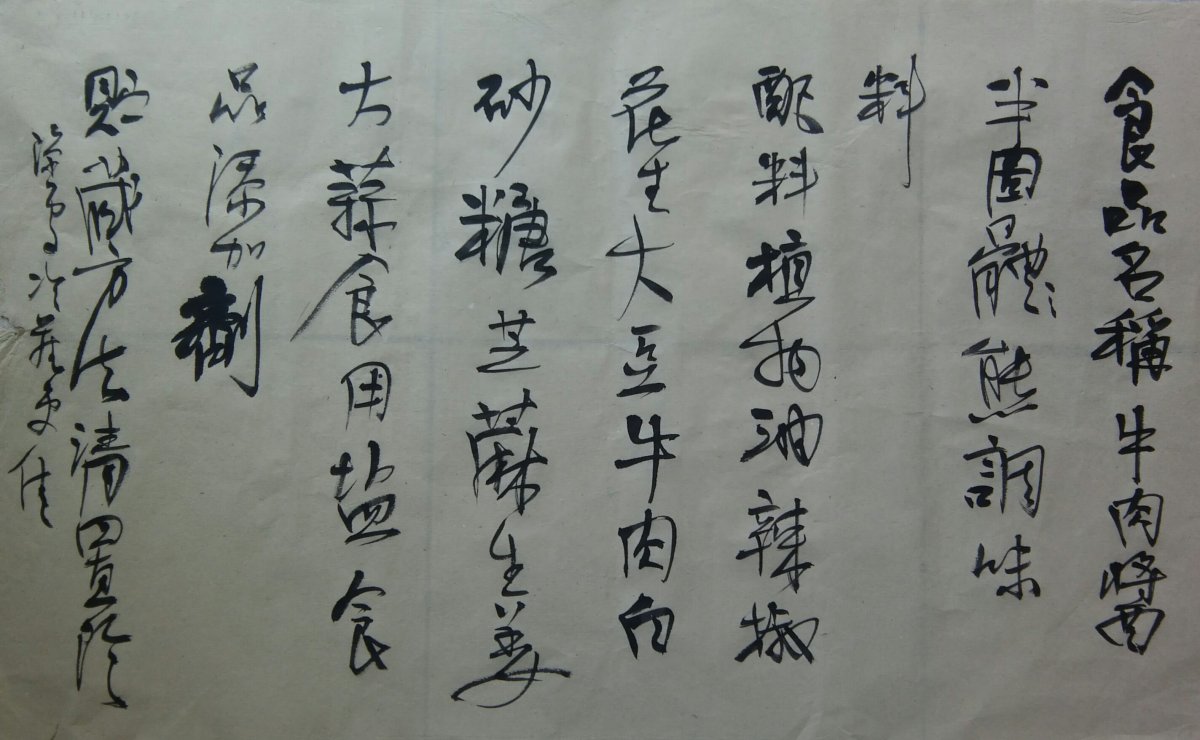 食品名稱牛肉醬
半固體熊調味
料
配料植物油辣椒
花生大豆牛肉白
砂糖芝蔴生姜
大蒜食用盐食
品添加劑
貯藏方法請置陰
涼處冷藏更佳